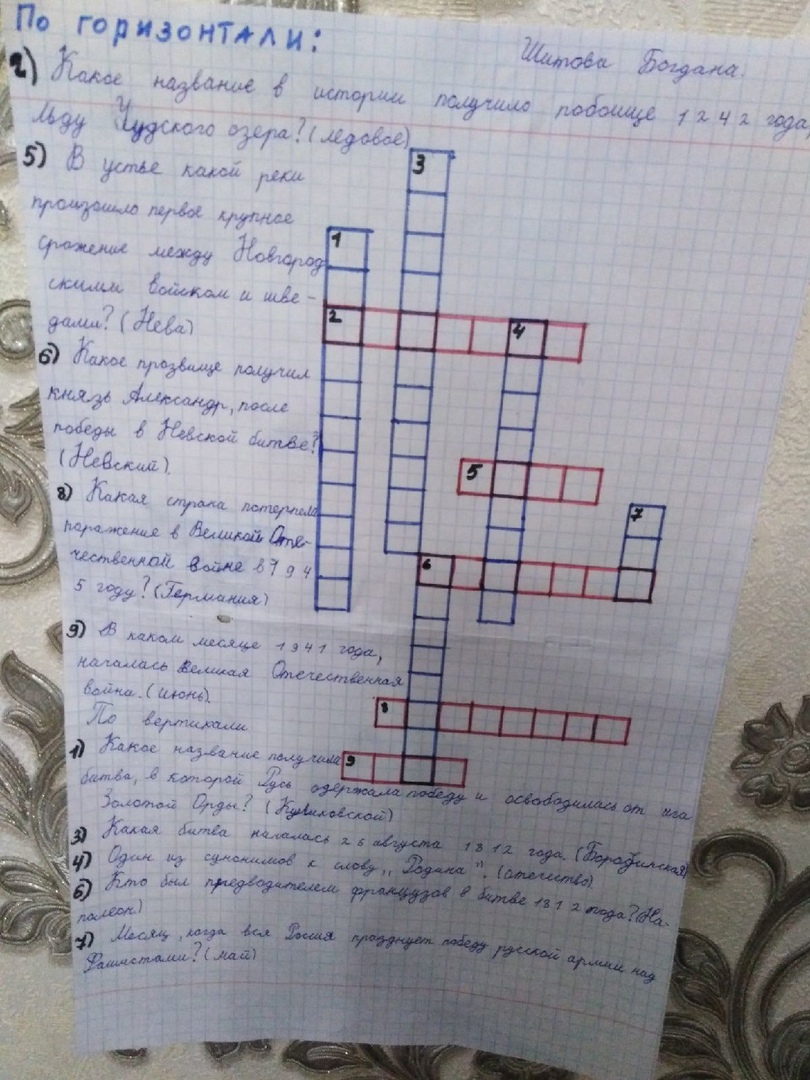 По горизонтали:
Шитова Богдана.
2) Какое название в истории получило побоище 1242 года,
льду Чудского озера? (ледовое)
5) В устье какой реки
произошло первое крупное
сражение между Новгород
ским войском и шве-
дами? (Нева)
6) Какое прозвище получил
князь Александр, после
победы в Невской битве?
(Невский).
8) Какая страна потерпела
поражение в Великой Оте-
чественной войне в 194
5 году? (Германия)
9) В каком месяце 1941 года,
началась Великая Отечественная
война. (июнь).
По вертикали
1) Какое название получила
битва, в которой Русь одержала победу и освободилась от ига
Золотой Орды? (Куликовской)
3) Какая битва началась 26 августа 1812 года. (Бородинская)
4) Один из сунонимов к слову „Родина". (отечество)
6) Кто был предводителем французов в битве 1812 года? (На-
полеон)
7) Месяц, когда вся Россия празднует победу русской армии над
Фашистами? (май)
3
1
2
4
5
7
6
8
9